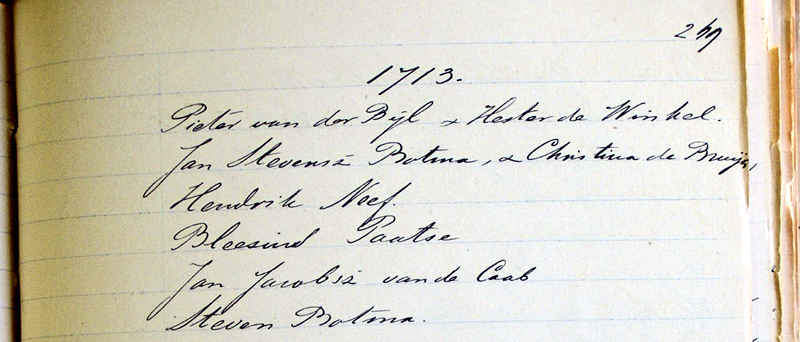 269
1713.
Pieter van der Bÿl & Hester de Winkel.
Jan Stevensz Botma, & Christina de Bruijn,
Hendrik Neef.
Bleesind Paatse
Jan Jacobsz van de Caab
Steven Botma.